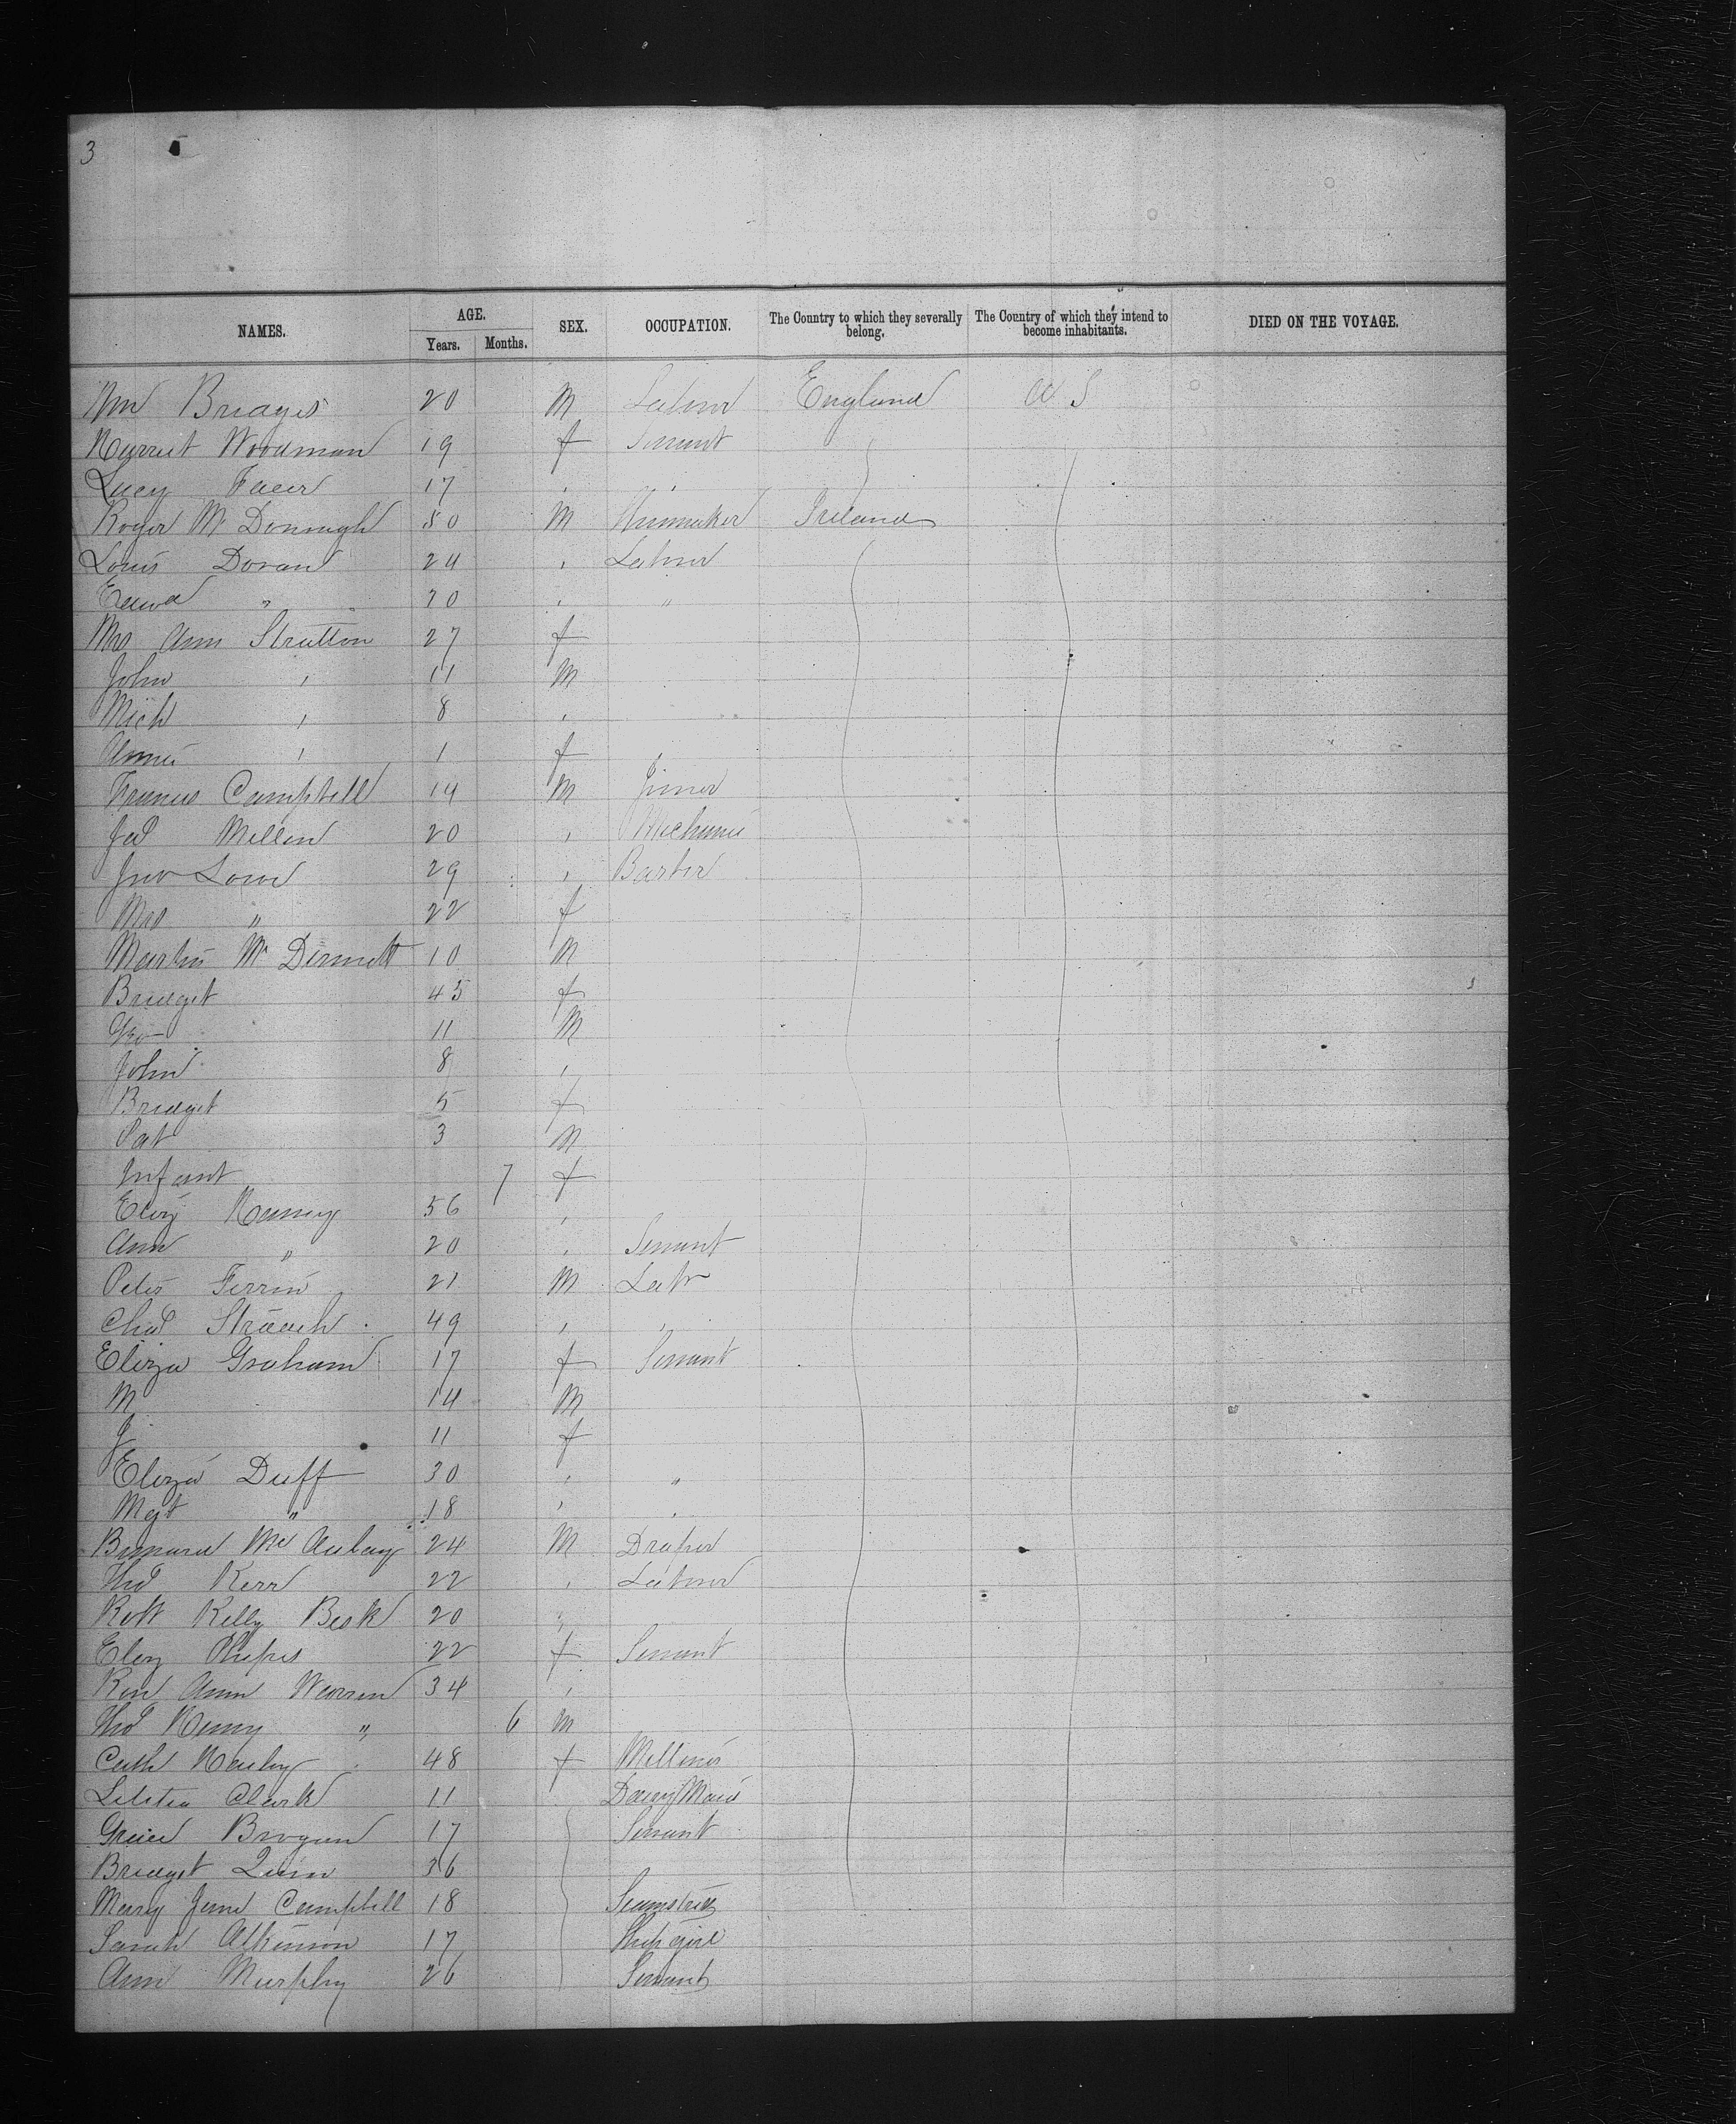 3
NAMES. AGE. SEX. OCCUPATION. The Country to which they severally belong. The Country of which they intend to become inhabitants. DIED ON THE VOYAGE.
Years. Months.
Wm Bridges 20 M Labour England U S
Harriet Woodman 19 f Servant
Lucy Facer 17
Roger Mc Donough 50 M Ireland
Louis Doran 24 Labour
Edwd " 20 "
Mrs Ann Stratton 27 f
John " 11 M
Mich " 8
Annie " 1 f
Francis Campbell 19 M Joiner
Jas Millen 20 Mechanic
Jno Lowe 29 Barber
Mrs " 22 f
Martin Mc Dermott 10 M
Bridget 45 f
Geo 11 M
John 8
Bridget 5 f
Pat 3 M
Infant 7 f
Eliz 56
Ann " 20 Servant
Peter Ferrin 21 M Labr
Chas 49
Eliza Graham 17 f Servant
M 14 M
J 11 f
Eliza Duff 30 "
Mgt " 18
Bernard Mc Aulay 24 M Draper
Thos Kerr 22 Labour
Robt Kelly 20
Eliz 22 f Servant
Ann Warren 34
Thos Henry " 6 M
Cath 48 f Milliner
Letitia Clark 11 Dairy Maid
Grace Brogan 17 Servant
Bridget Quin 36
Mary Jane Campbell 18 Seamstress
Sarah Atkinson 17 Shop girl
Ann Murphy 26 Servant